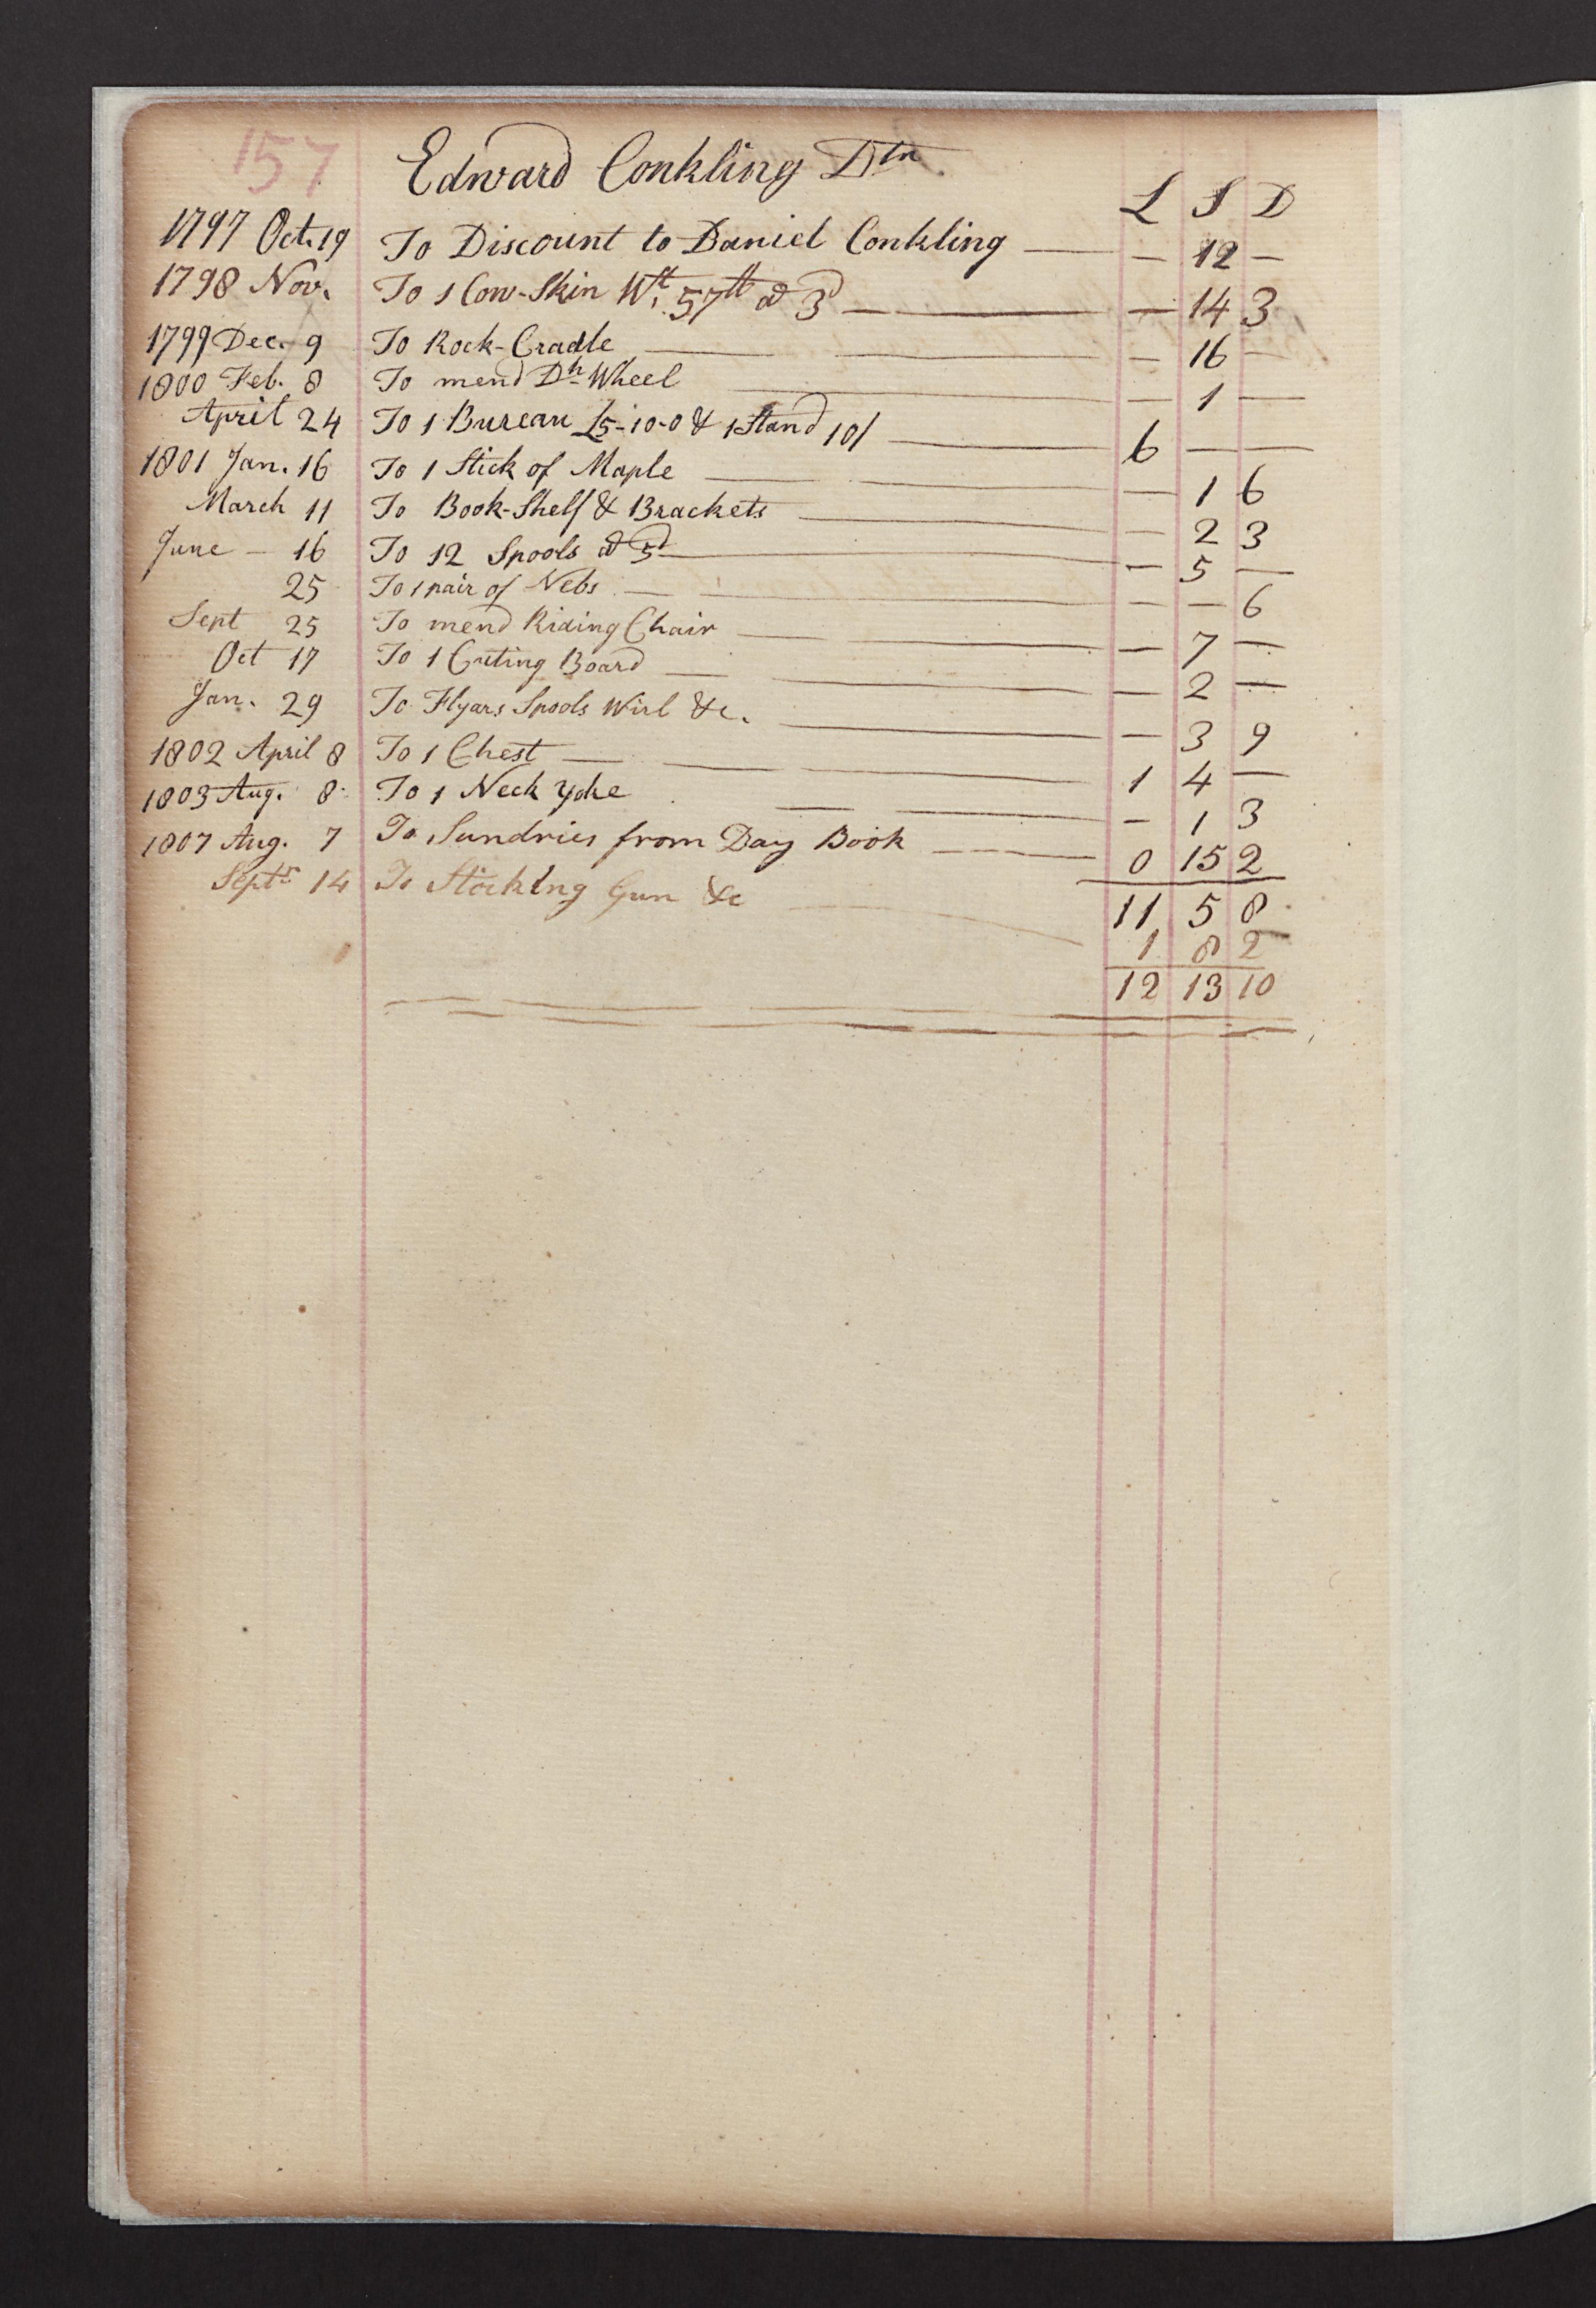 157 Edward Conkling Dtr
L S D
1797 Oct. 19 To Discount to Daniel Conkling — — 12 —
1798 Nov. To 1 Cow-Skin Wt. 57 lb @ 3d — — 14 3
1799 Dec. 9 To Rock-Cradle — — 16 —
1800 Feb. 8 To mend Dh Wheel — — 1 —
April 24 To 1 Bureau £5-10-0 & 1 Stand 10/ — 6 — —
1801 Jan. 16 To 1 Stick of Maple — — 1 6
March 11 To Book-Shelf & Brackets — — 2 3
June — 16 To 12 Spools @ 5d — — 5 —
25 To 1 pair of Nebs — — — 6
Sept 25 To mend Riding Chair — — 7 —
Oct 17 To 1 Cuting Board — — 2 —
Jan. 29 To Flyars Spools Wirl &c. — — 3 9
1802 April 8 To 1 Chest — 1 4 —
1803 Aug. 8 To 1 Neck Yoke — — 1 3
1807 Aug. 7 To Sundries from Day Book — 0 15 2
11 5 8
Septr 14 To Stocking Gun &c — 1 8 2
12 13 10